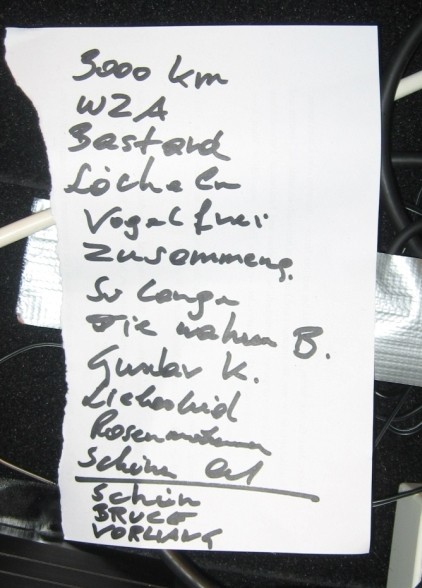 3000 km
WZA
Bastard
Lächeln
Vogelfrei
Zusammeng.
So lange
Die wahren B.
Gustav K.
Liebeslied
Rosen
Schöne
Schön
BRUCE
VORHANG